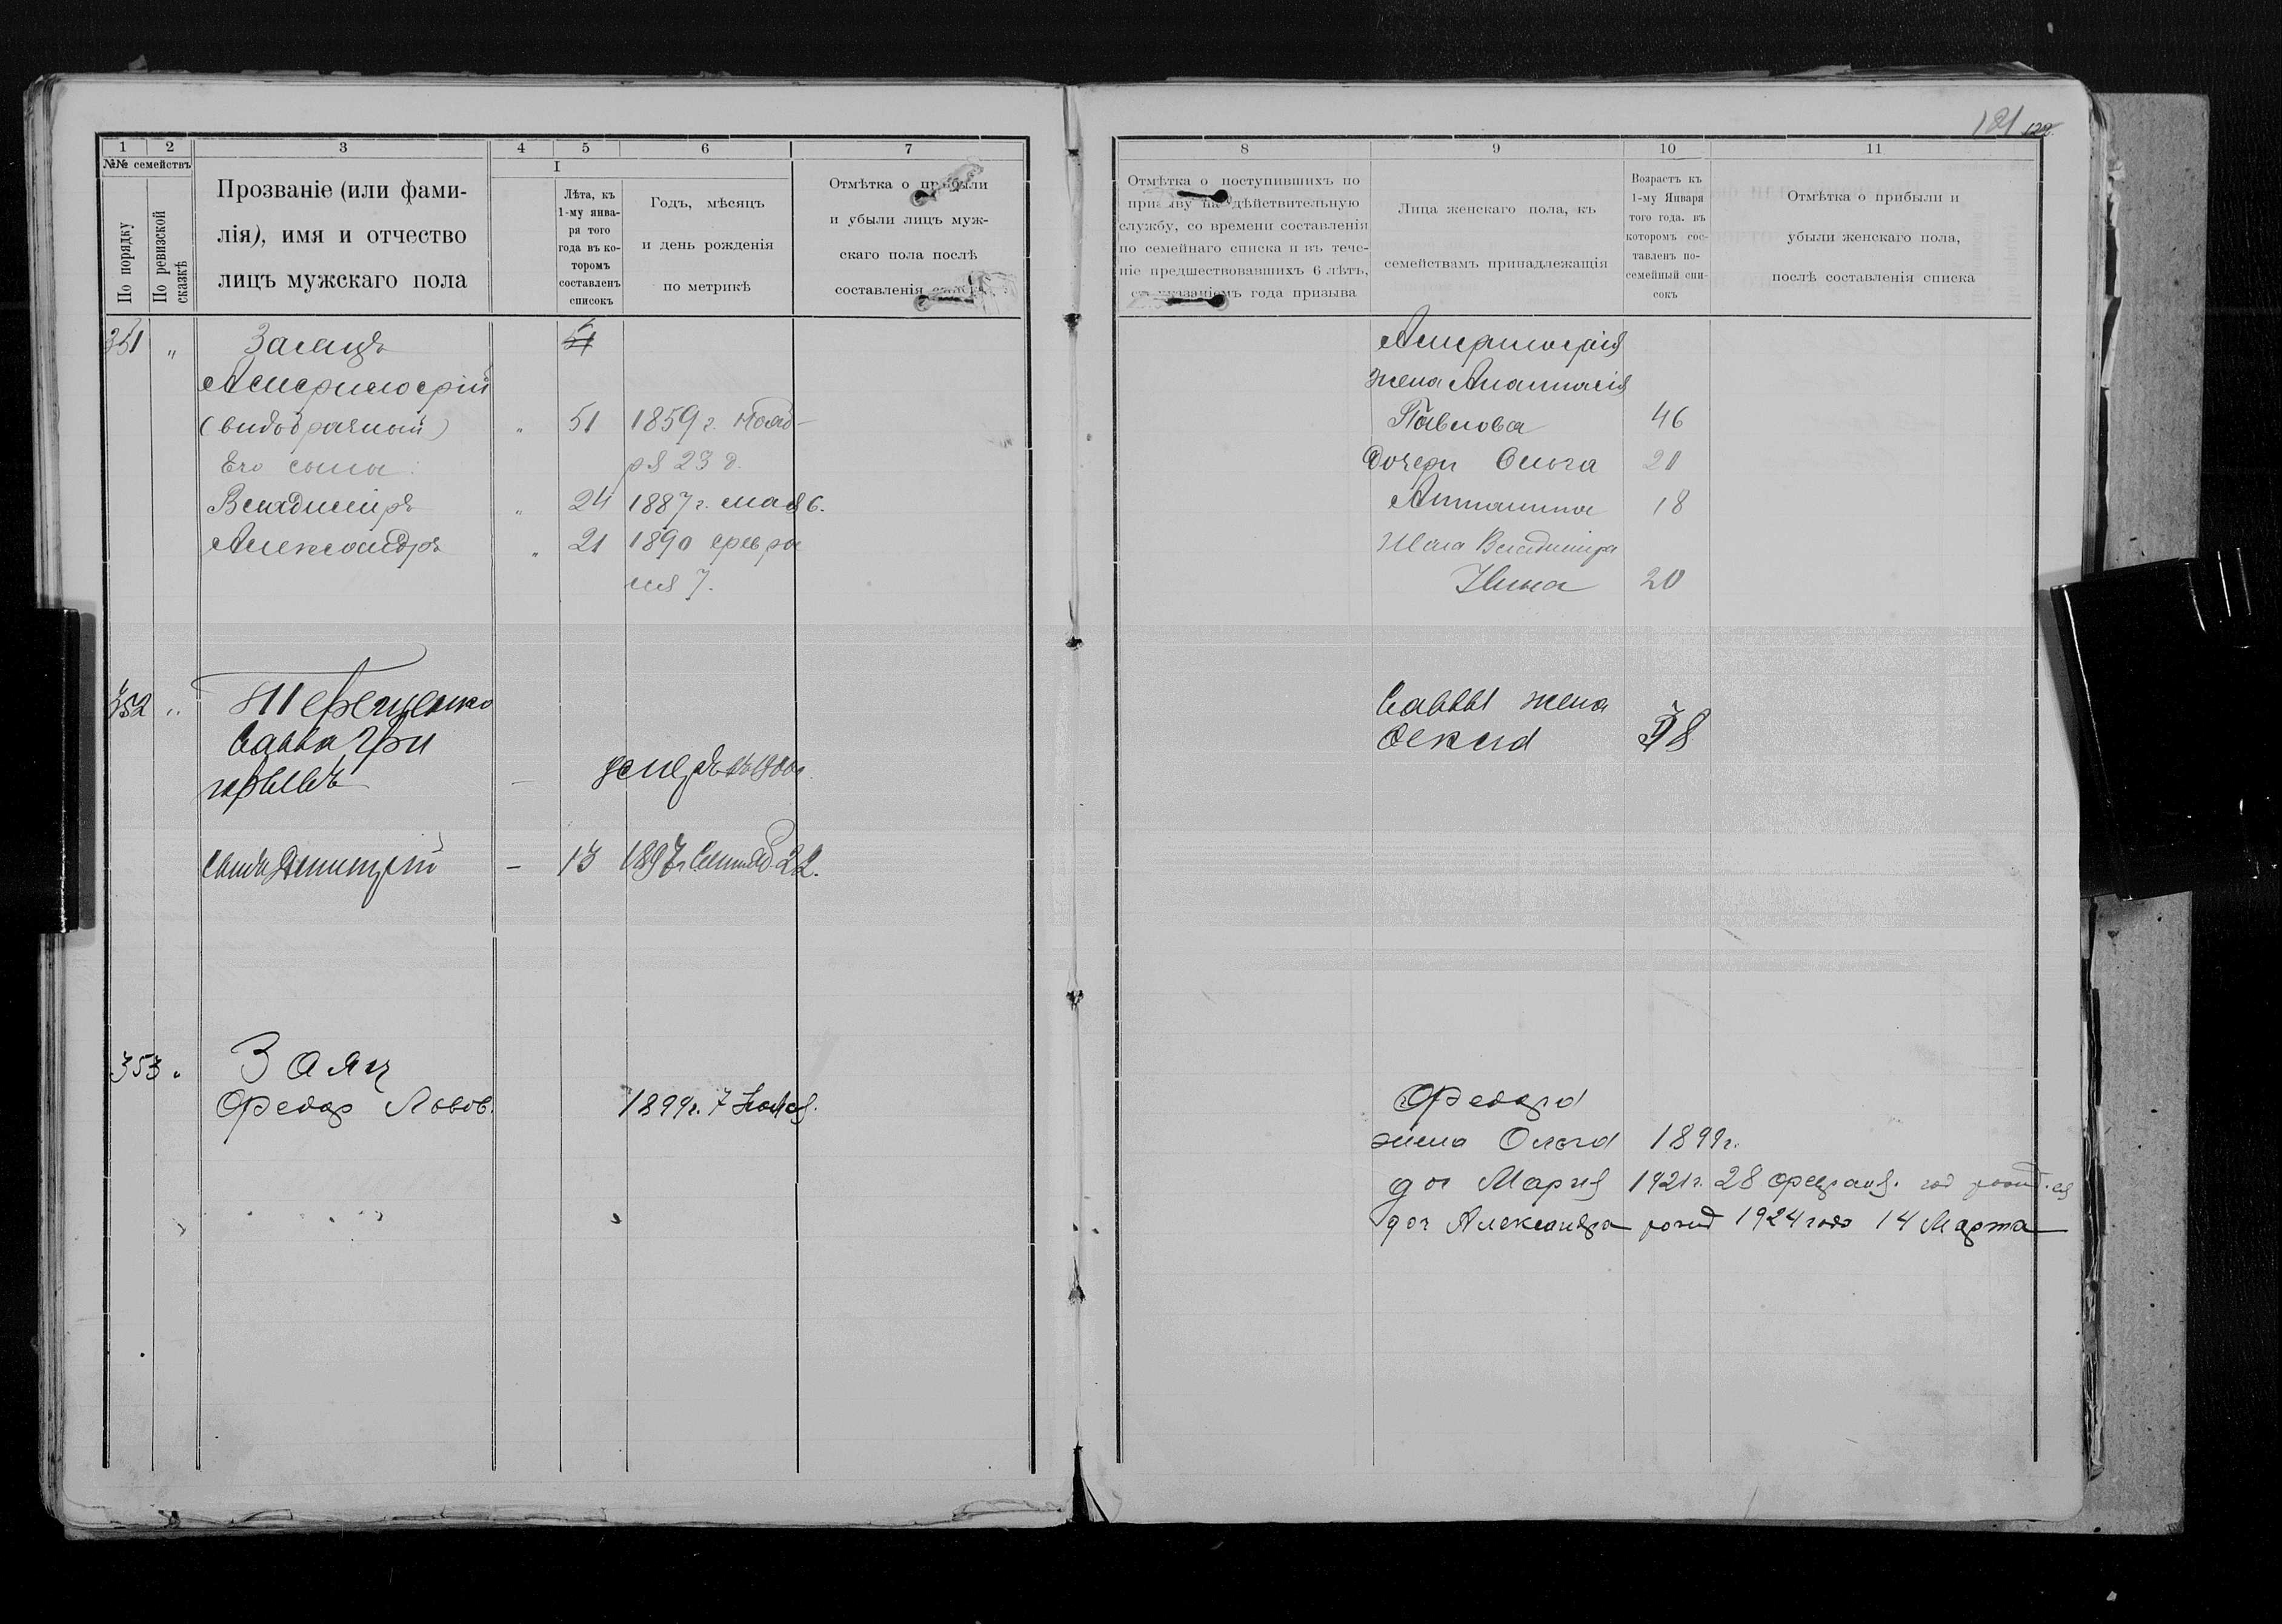 121 122.
1 2 3 4 5 6 7
№№ семействъ
По порядку
По ревизской сказкѣ
Прозваніе (или фами-
лія), имя и отчество
лицъ мужскаго пола
I
Лѣта, къ
1-му янва-
ря того
года въ ко-
торомъ
составленъ
списокъ
Годъ, мѣсяцъ
и день рожденія
по метрикѣ
Отмѣтка о прибыли
и убыли лицъ муж-
скаго пола послѣ
составленія списка.
351 „ Заяцъ
(внѣбрачный) „ 51 1859 г. Нояб-
Его сыны: ря 23 д.
Владиміръ „ 24 1887 г. мая 6.
Александръ „ 21 1890 февра
ля 7.
352 „ Терещенко
Савва Гри
горьевъ — умеръ въ
сынъ Дмитрій — 13 1897 г. Сентяб. 22.
353 „ Заяц
Федор Львов. 1899 г. 7
8 9 10 11
Отмѣтка о поступившихъ по
призыву на дѣйствительную
службу, со времени составленія
по семейнаго списка и въ тече-
ніе предшествовавшихъ 6 лѣтъ,
съ указаніемъ года призыва
Лица женскаго пола, къ
семействамъ принадлежащія
Возрастъ къ
1-му Января
того года. въ
котором сос-
тавленъ по-
семейный спи-
сокъ
Отмѣтка о прибыли и
убыли женскаго пола,
послѣ составленія списка
жена Анастасія
Павлова 46
Дочери Ольга
Антонина 18
Жена Владиміра
Нина 20
Саввы жена
Фекла
Федора
жена Ольга 1899 г.
доч Мария 1921 г. 28 февраля. год рожд.
доч Александра рожд 1924 года 14 Марта